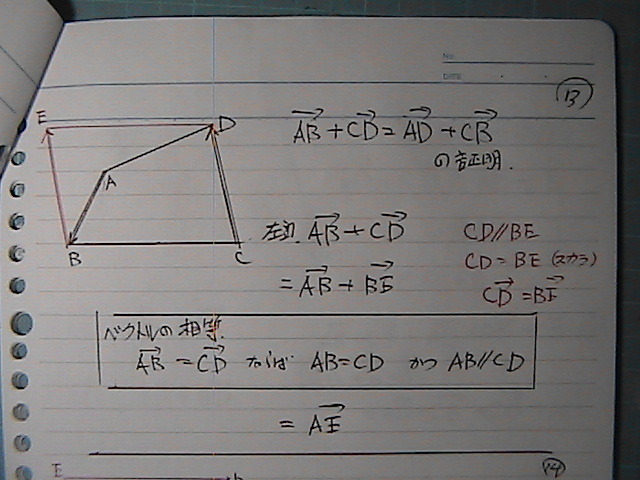 No.
DATE
⑬
E D A B C
AB→ + CD→ = AD→ + CB→
の証明.
左辺 AB→ + CD→
= AB→ + BE→
CD//BE
CD = BE (スカラ)
CD→ = BE→
ベクトルの相等
AB→ = CD→ ならば AB=CD かつ AB//CD
= AE→
⑭
E